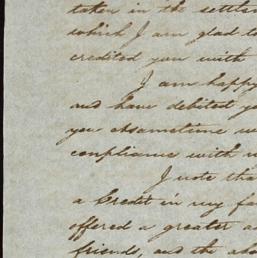 taken in the settle
which I am glad to
credited you with
I am happy
and have debited yo
you at sametime w
compliance with
I note tha
a Credit in my fa
offered a greater a
friends, and the abo